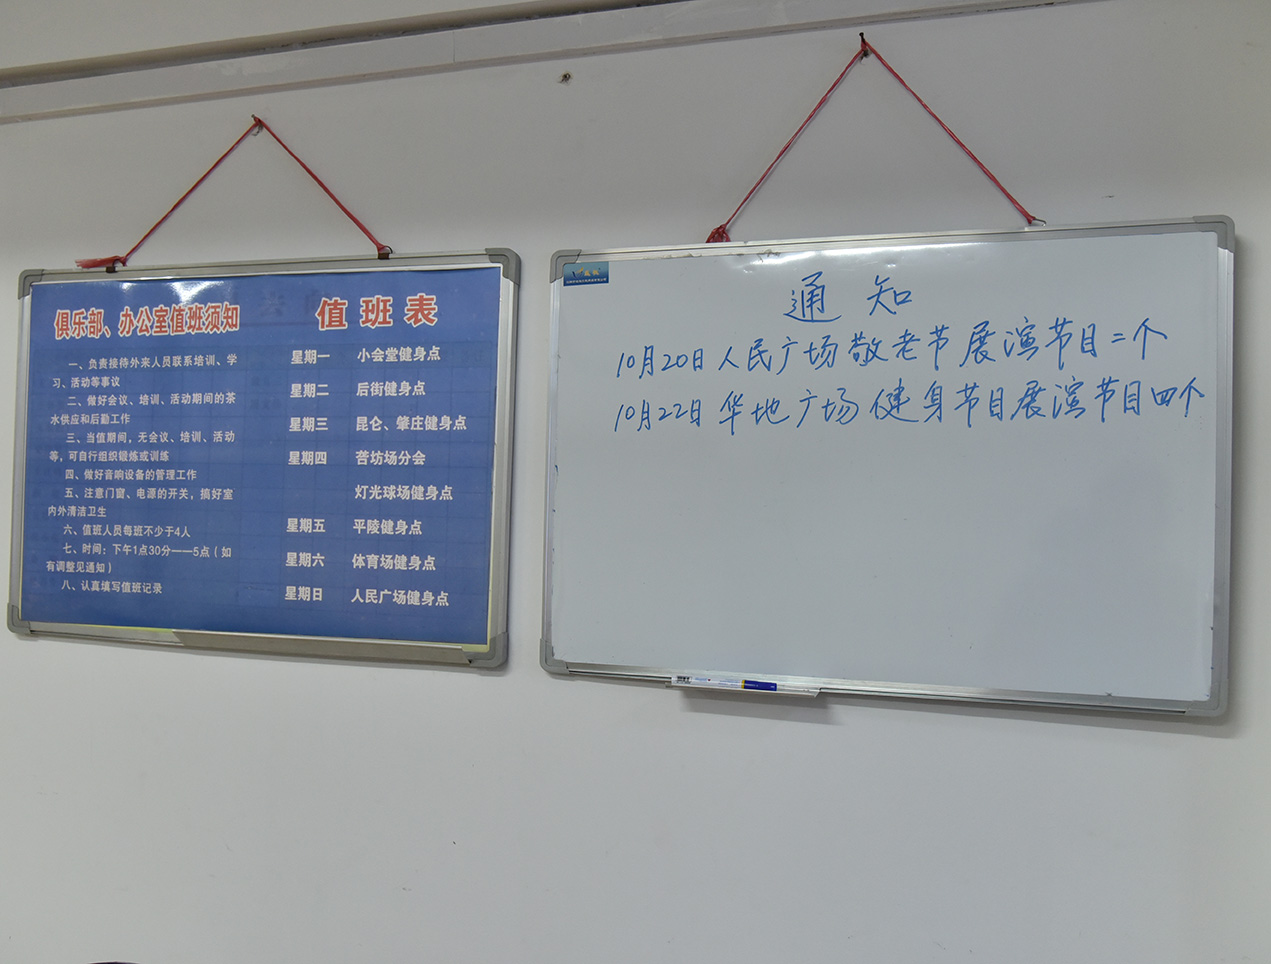 俱乐部、办公室值班须知
一、负责接待外来人员联系培训、学
习、活动等事议
二、做好会议、培训、活动期间的茶
水供应和后勤工作
三、当值期间，无会议、培训、活动
等，可自行组织锻炼或训练
四、做好音响设备的管理工作
五、注意门窗、电源的开关，搞好室
内外清洁卫生
六、值班人员每班不少于4人
七、时间：下午1点30分——5点（如
有调整见通知）
八、认真填写值班记录
值班表
星期一 小会堂健身点
星期二 后街健身点
星期三 昆仑、肇庄健身点
星期四 营坊场分会
灯光球场健身点
星期五 平陵健身点
星期六 体育场健身点
星期日 人民广场健身点
通知
10月20日人民广场敬老节展演节目二个
10月22日华地广场健身节目展演节目四个